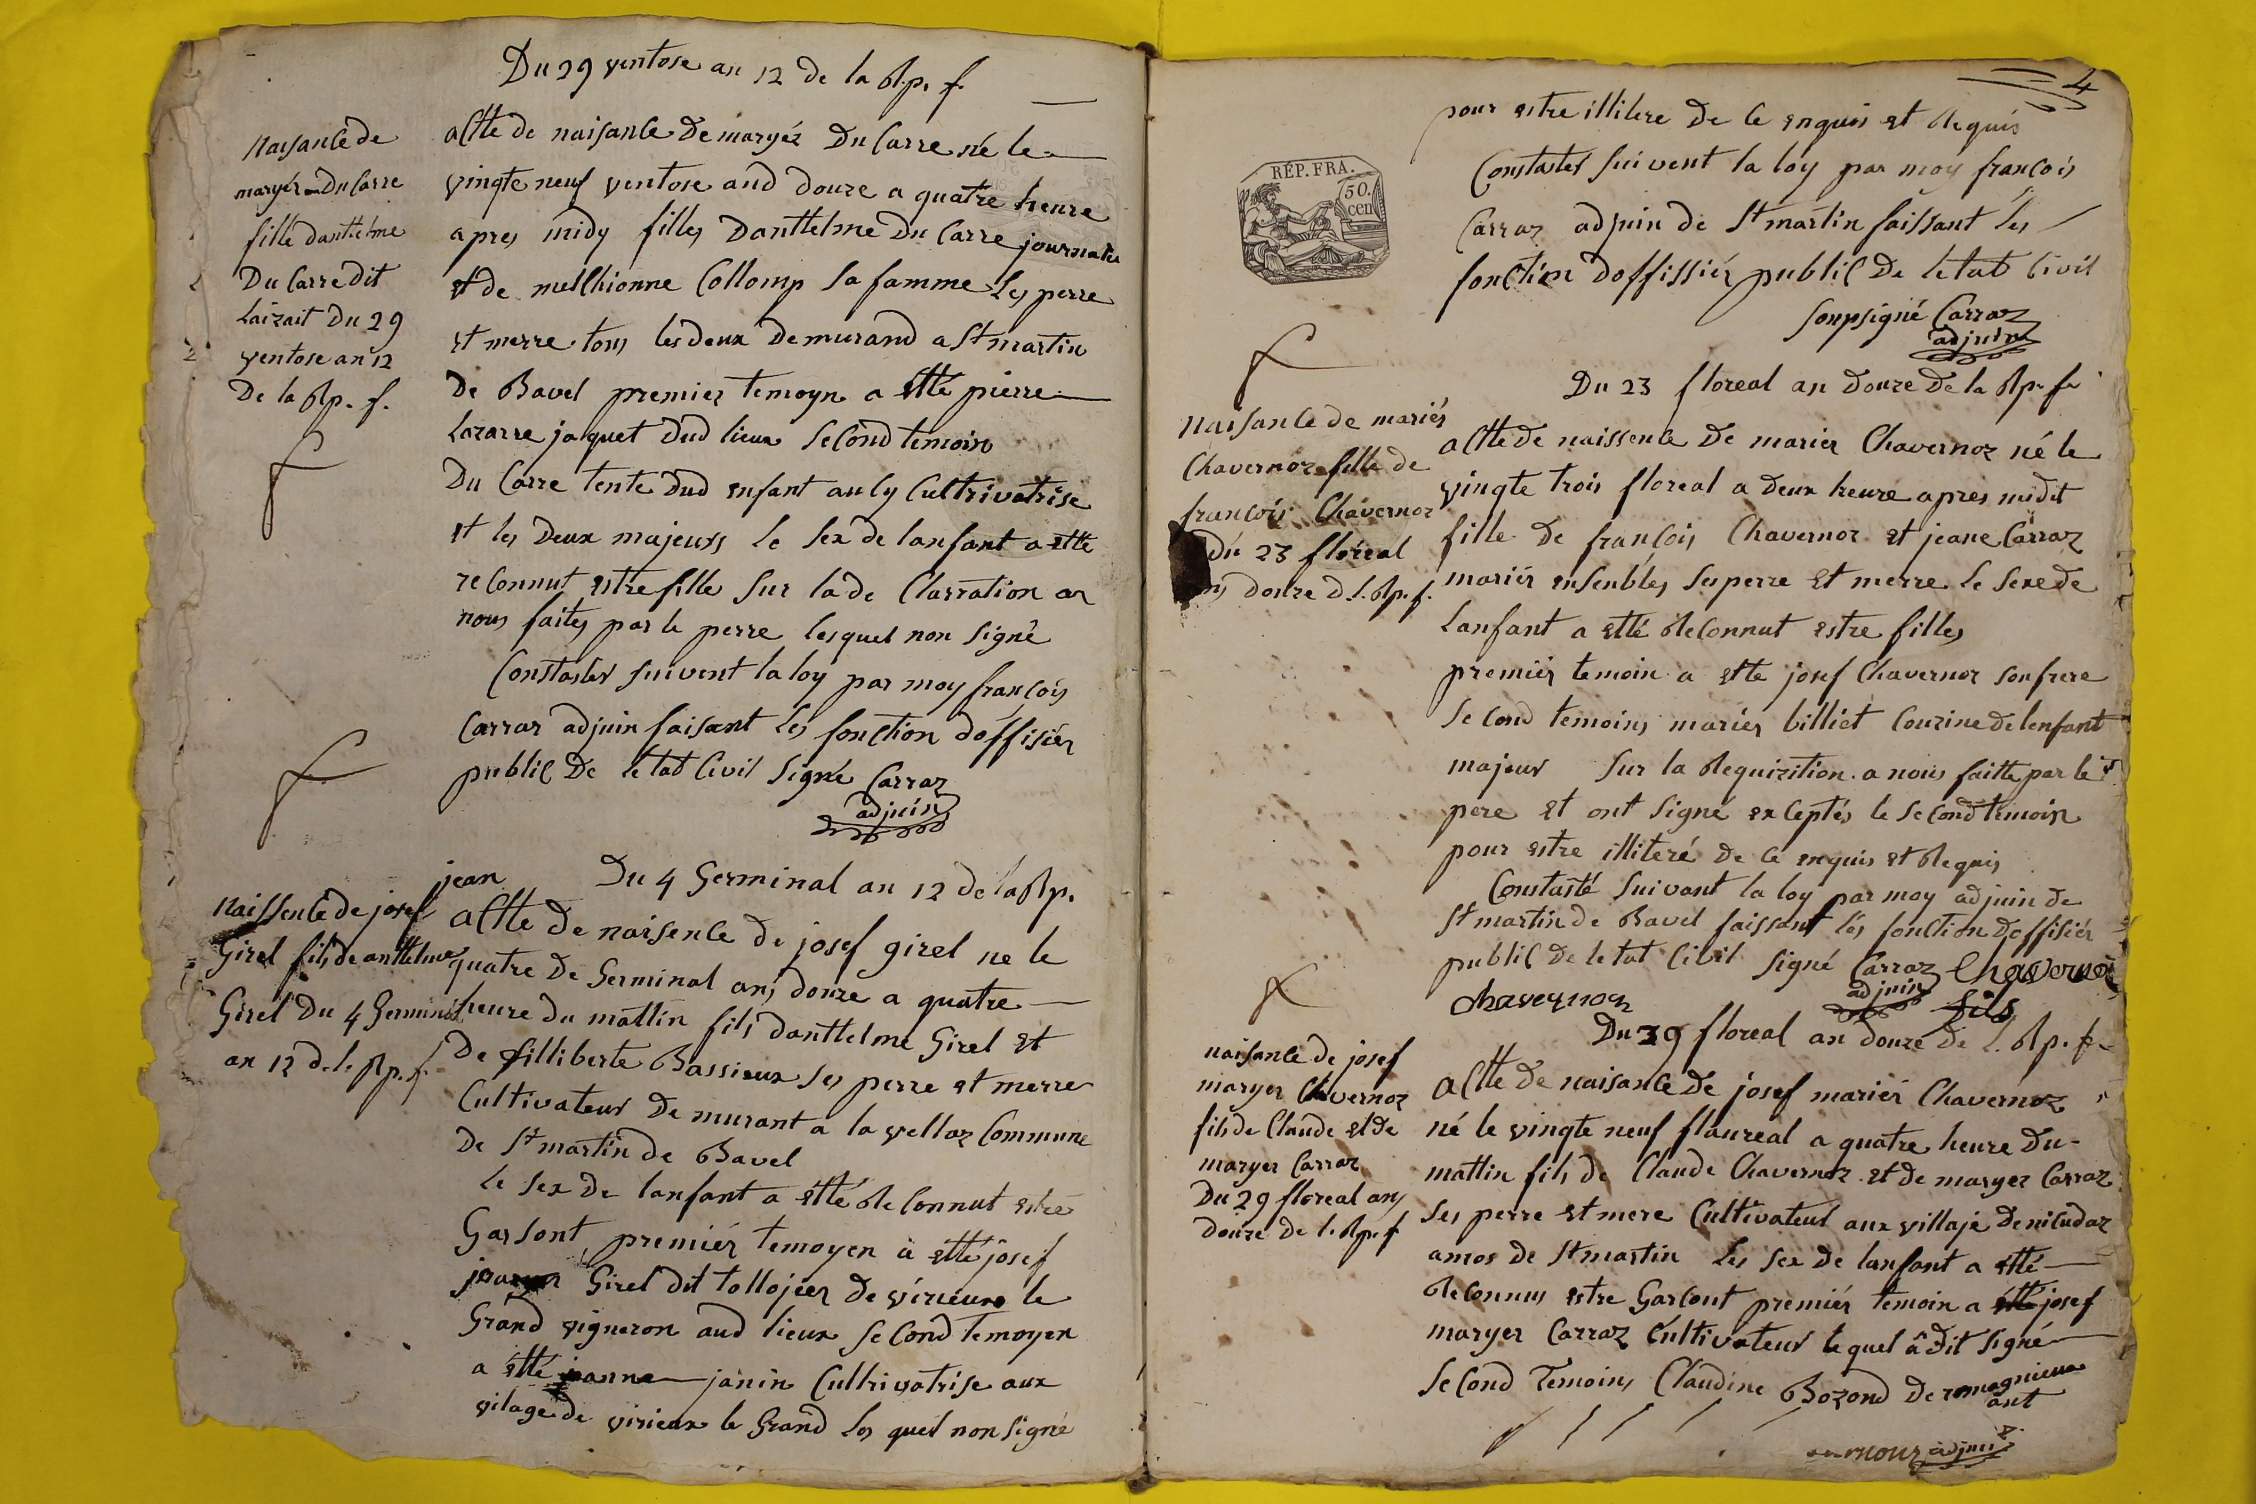 Du 29 ventose an 12 de la Rp. f.
Naisance de
maryéz Du Carre
fille danthelme
Du Carre dit
Laizait Du 29
ventose an 12
De la Rp. f.
actte de naisance De maryéz Du Carre né le
vingte neuf ventose aud douze a quatre heure
apres midy filles Danthelme Du Carre journalie
et de melchionne Collomp sa famme Les perre
et merre tous les deux Demurand a St martin
De Bavel premier temoyn a étté pierre
Lazarre jaquet dud lieux second temoin
Du Carre tente dud enfant aucy Cultrivatrise
et les Deux majeurs Le sex de lanfant a etté
reconnut estre fille Sur la de Clarration a
nous faites par le perre lesquel non signé
Constaster suivent la loy par moy françois
Carraz adjuin faisant les fonction dóffisiér
public De letat Civil signé Carraz
adjuin
Du 4 Germinal an 12 de la Rp.
Naissence de josef
Girel fils de anthelme
Girel Du 4 Germinal
an 12 d. l. Rp. f.
jean
actte de naisence de josef girel ne le
quatre de Germinal ans douze a quatre
heure du mattin fils danthelme Girel et
De filliberte Bassieux ses perre et merre
Cultivateur De murant a la vellaz Commune
De St martin de Bavel
le sex de lanfant a étté Reconnut estre
Garsont premiér temoyen à étté josef
Girel dit tollojeer de virieux le
Grand vigneron aud lieux second temoyen
a étté jeanne janin Cultrivatrise aux
vilage de virieux le Grand les quel non signé
4
RÉP. FRA.
50.
cen
pour estre illitere De ce enquis et Requis
Constaster suivent la loy par moy françois
Carraz adjuin de St martin faissant les
fonction Doffissiér public De letat Civil
soupsigné Carraz
adjuin
Du 23 floreal an douze De la Rp. f.
Naisance de mariés
Chavernoz fille de
françois Chavernoz
Du 23 floreal
ans douze d. l. Rp. f.
actte de naissence De marier Chavernoz né le
vingte trois floreal a deux heure apres midit
fille de françois Chavernoz et jeane Carraz
mariér ensenbles ses perre et merre le sexe de
Lanfant a etté Reconnut estre filles
premiér temoin a etté josef Chavernoz son frere
second temoins marier billiet Couzine de lenfant
majeur sur la Requizition a nous faitte par le
pere et ont signé exceptés le second temoin
pour estre illiteré de ce enquis et Requis
Constasté suivant la loy par moy adjuin de
St martin de Bavel faissant les fonction doffisiér
public de letat Civil signé Carraz Chavernoz
Chavernoz adjuin fils
Du 29 floreal an douze De l. Rp. f.
naisance de josef
maryer Chavernoz
fils de Claude et de
maryer Carraz
Du 29 floreal ans
douze de l. Rp. f.
Actte de naisance De josef mariér Chavernoz
né le vingte neuf flaureal a quatre heure Du
mattin fils de Claude Chavernoz et de maryer Carraz
ses perre et mere Cultivateur aux villaje De niCudaz
amos de St martin Les sex de lanfant a etté
Reconnus estre Garcont premiér temoin a étté josef
maryer Carraz Cultivateur lequel â dit signé
second temoins Claudine Bozond De romagnieux
ant
adjuin